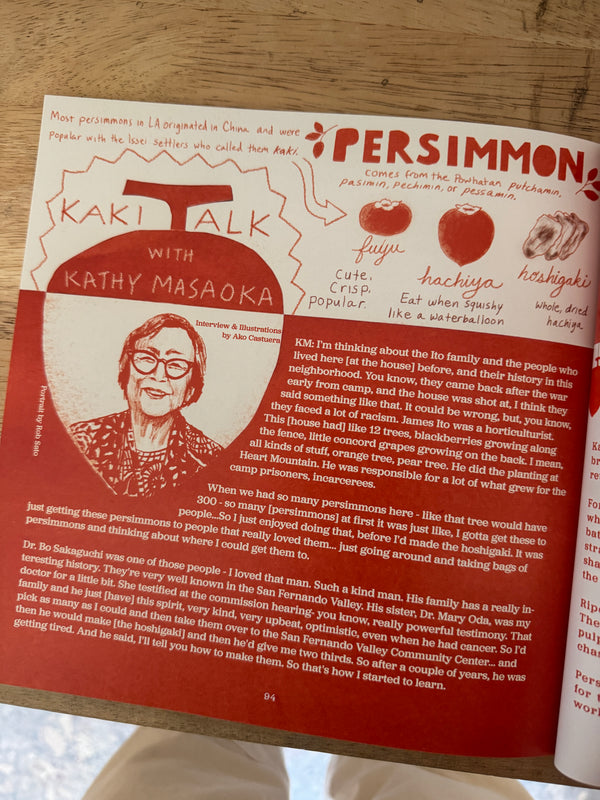 Most persimmons in LA originated in China and were
popular with the Issei settlers who called them kaki.
PERSIMMON
comes from the Powhatan putchamin,
pasimin, pechimin, or pessamin.
KAKI TALK
WITH
KATHY MASAOKA
fuyu
cute.
Crisp.
popular.
hachiya
Eat when squishy
like a waterballoon
hoshigaki
whole, dried
hachiya
Interview & Illustrations
by Ako Castuera
Portrait by Rob Sato
KM: I'm thinking about the Ito family and the people who
lived here [at the house] before, and their history in this
neighborhood. You know, they came back after the war
early from camp, and the house was shot at, I think they
said something like that. It could be wrong, but, you know,
they faced a lot of racism. James Ito was a horticulturist.
This [house had] like 12 trees, blackberries growing along
the fence, little concord grapes growing on the back. I mean,
all kinds of stuff, orange tree, pear tree. He did the planting at
Heart Mountain. He was responsible for a lot of what grew for the
camp prisoners, incarcerees.
When we had so many persimmons here - like that tree would have
300 - so many [persimmons] at first it was just like, I gotta get these to
people...So I just enjoyed doing that, before I'd made the hoshigaki. It was
just getting these persimmons to people that really loved them... just going around and taking bags of
persimmons and thinking about where I could get them to.
Dr. Bo Sakaguchi was one of those people - I loved that man. Such a kind man. His family has a really in-
teresting history. They're very well known in the San Fernando Valley. His sister, Dr. Mary Oda, was my
doctor for a little bit. She testified at the commission hearing- you know, really powerful testimony. That
family and he just [have] this spirit, very kind, very upbeat, optimistic, even when he had cancer. So I'd
pick as many as I could and then take them over to the San Fernando Valley Community Center... and
then he would make [the hoshigaki] and then he'd give me two thirds. So after a couple of years, he was
getting tired. And he said, I'll tell you how to make them. So that's how I started to learn.
94
For
the
Ripe
The
pulp
Pers
for
work